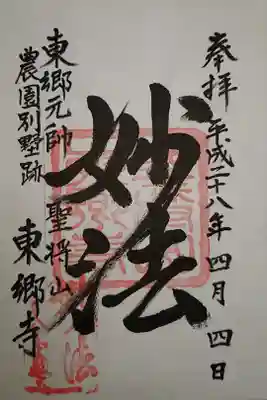 奉拝 平成二十八年四月四日
妙法
東郷元帥 聖将山
農園別墅跡 東郷寺